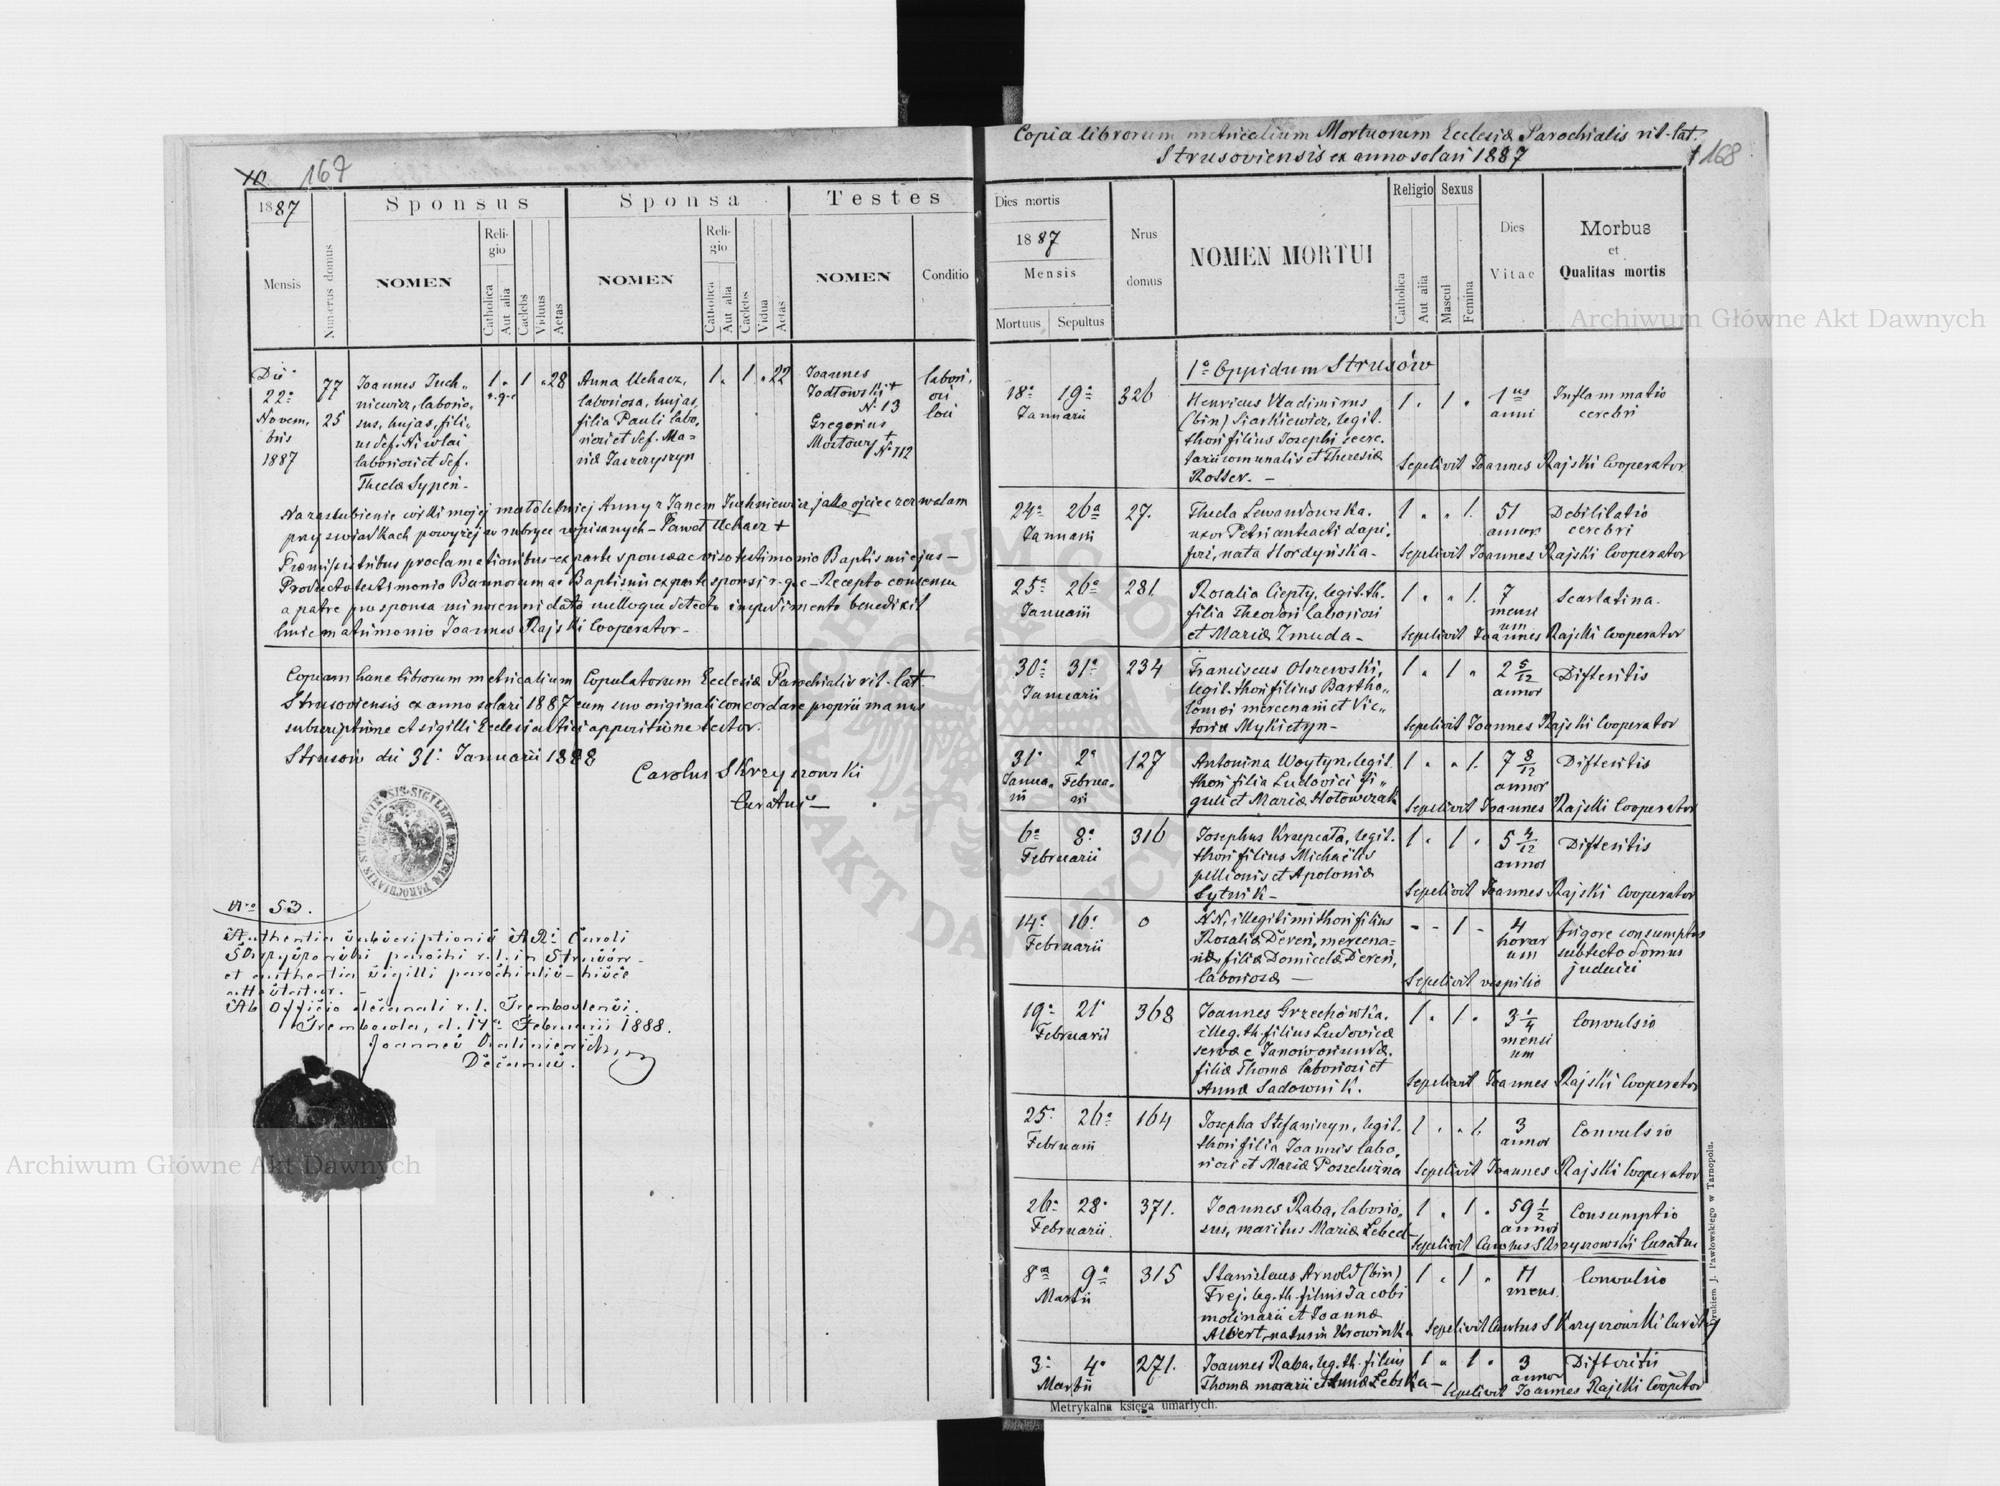 167
1887
Sponsus
Sponsa
Testes
Mensis
Numerus domus
NOMEN
Reli-
gio
Catholica
Aut alia
Caelebs
Viduus
Aetas
NOMEN
Reli-
gio
Catholica
Aut alia
Caelebs
Vidua
Aetas
NOMEN
Conditio
Die
22a
Novem.
bris
1887
77
25
Joannes Juch„
niewicz, laborio„
sus, hujas, fili„
us def. Nicolai
laboriosi et def.
Theclae Sypeń-
1 . 1 . 28
r. g. c
Anna Uchacz,
laboriosa, hujas,
filia Pauli labo„
riosi et def. Ma=
riae Jaszczyszyn
1 . 1 . 22
Joannes
Jodłowski +
No 13
Gregorius
Moztowy +
No 112
labori„
osi
loci
Na zaślubienie córki mojej małoletniej Anny z Janem Juchniewicz, jako ojciec zezwalam
przy świadkach powyżej w rubryce wpisanych - Paweł Uchacz +
Praemissis tribus proclamationibus - ex parte sponsae ac viso testimonio Baptismi ejus -
Producto testimonio Bannorum ac Baptismi ex parte sponsi r. g. c - Recepto consensu
a patre pro sponsa minorenni dato nulloque detecto impedimento benedixit
huic matrimonio Joannes Rajski Cooperator -
Copiam hanc librorum metricalium Copulatorum Ecclesiae Parochialis rit. lat.
Strusoviensis ex anno solari 1887 cum suo originali concordare proprii manus
subscriptione et sigilli Ecclesiastici appositione testor.
Strusów die 31. Januarii 1888
Carolus Skrzyszowski
Curatus -
No 53.
Authentia subscriptionis AR. Caroli
Skrzyszowski parochi r. l. in Strusów -
et authentia sigilli parochialis - hisce
attestatur. -
Ab Officio decanali r. l. Trembovlensi.
Trembowla, d. 14a Februarii 1888.
Joannes Kalinievich,
Decanus.
Copia librorum metricalium Mortuorum Ecclesiae Parochialis rit. lat.
Strusoviensis ex anno solari 1887
168
Dies mortis
1887
Mensis
Mortuus
Sepultus
Nrus
domus
NOMEN MORTUI
Religio
Catholica
Aut alia
Sexus
Mascul
Femina
Dies
Vitae
Morbus
et
Qualitas mortis
1o Oppidum Strusów
18a 19a 326
Januarii
Henricus Vladimirus
(bin) Siarkiewicz, legit.
thori filius Josephi secre.
tarii comunalis et Theresiae
Rosser. -
1 . 1 .
1us
anni
Inflammatio
cerebri
Sepelivit Joannes Rajski Cooperator
24a 26a 27.
Januarii
Thecla Lewandowska.
uxor Petri anteacti dapi„
feri, nata Hordyńska -
1 . . 1.
51
annor.
Debilitatio
cerebri
Sepelivit Joannes Rajski Cooperator
25a 26a 281.
Januarii
Rosalia Ciepły, legit. th.
filia Theodori laboriosi
et Mariae Zmuda -
1 . . 1.
7
mensi
um
Scarlatina.
Sepelivit Joannes Rajski Cooperator
30a 31a 234
Januarii
Franciscus Olszewski,
legit. thori filius Bartho„
lomei mercenarii et Vic„
toriae Mykietyn -
1 . 1 .
2 5/12
annor
Difteritis
Sepelivit Joannes Rajski Cooperator
31a 2a 127
Janua„ Februa„
rii rii
Antonina Woytyn, legit.
thori filia Ludovici fi„
guli et Mariae Hotowczak
1 . . 1.
7 8/12
annor
Difteritis
Sepelivit Joannes Rajski Cooperator
6a 8a 316
Februarii
Josephus Krzepcata, legit.
thori filius Michaëlis
pellionis et Apoloniae
Sytnik -
1 . 1 .
5 4/12
annor
Difteritis
Sepelivit Joannes Rajski Cooperator
14a 16a 0
Februarii
N.N. illegitimi thori filius
Rosaliae Dereń, mercena=
riae, filiae Domicelae Dereń,
laboriosae -
- - 1 -
4
horar
um
frigore consumptus
sub tecto domus
judaici
Sepelivit vespilio
19a 21a 368
Februarii
Joannes Grzechówka.
illeg. th. filius Ludovicae
servae e Janów oriundae.
filiae Thomae laboriosi et
Annae Sadownik.
1 . 1 .
3 1/4
mensi
um
Convulsio
Sepelivit Joannes Rajski Cooperator
25a 26a 164
Februarii
Josepha Stefaniszyn, legit.
thori filia Joannis labo„
riosi et Mariae Poszeluzna
1 . . 1.
3
annor
Convulsio
Sepelivit Joannes Rajski Cooperator
26a 28a 371.
Februarii.
Joannes Raba, laborio„
sus, maritus Mariae Lebed -
1 . 1 .
59 1/2
annor
Consumptio
Sepelivit Carolus Skrzyszowski Curatus
8a 9a 315
Martii
Stanislaus Arnold (bin)
Frej. leg. th. filius Jacobi
molinarii et Joannae
Albert, natus in Krowinka
1 . 1 .
11
mens.
Convulsio
Sepelivit Carolus Skrzyszowski Curatus
3a 4a 271.
Martii
Joannes Raba, leg. th. filius
Thomae morarii et Annae Lebska -
1 . 1 .
3
annor
Difteritis
Sepelivit Joannes Rajski Cooperator
Metrykalna księga umarłych.
Drukiem J. Pawłowskiego w Tarnopolu.
Archiwum Główne Akt Dawnych
Archiwum Główne Akt Dawnych
ARCHIWUM GŁÓWNE AKT DAWNYCH